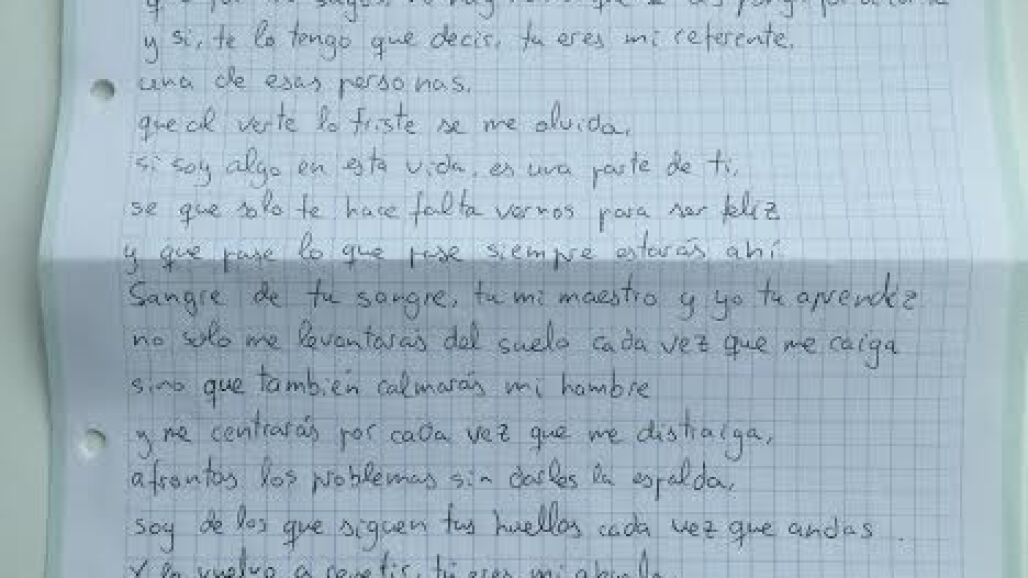 y si, te lo tengo que decir, tu eres mi referente,
una de esas personas,
que al verte lo triste se me olvida,
si soy algo en esta vida, es una parte de ti,
se que solo te hace falta vernos para ser feliz
y que pase lo que pase siempre estarás ahí.
Sangre de tu sangre, tu mi maestro y yo tu aprendiz
no solo me levantarás del suelo cada vez que me caiga
sino que también calmarás mi hambre
y me centrarás por cada vez que me distraiga,
afrontas los problemas sin darles la espalda,
soy de los que siguen tus huellas cada vez que andas.
Y lo vuelvo a repetir, tú eres mi abuelo.